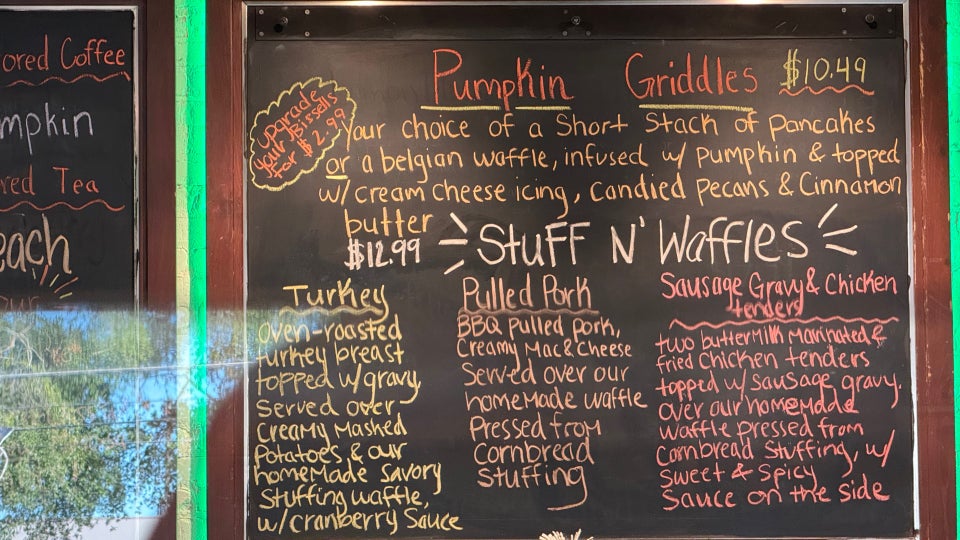 ored Coffee
mpkin
red Tea
each
our
Pumpkin Griddles $10.49
uparade
your Bissells
for $2.99
Your choice of a Short Stack of pancakes
or a belgian waffle, infused w/ pumpkin & topped
w/ cream cheese icing, candied pecans & Cinnamon
butter
$12.99
Stuff N' Waffles
Turkey
oven-roasted
turkey breast
topped w/ gravy,
Served over
Creamy Mashed
Potatoes & our
homemade savory
stuffing waffle,
w/ cranberry Sauce
Pulled Pork
BBQ pulled pork,
Creamy Mac & Cheese
Served over our
homemade waffle
Pressed from
Cornbread
stuffing
Sausage Gravy & Chicken
tenders
two buttermilk marinated &
fried chicken tenders
topped w/ sausage gravy.
over our homemade
waffle pressed from
cornbread stuffing, w/
sweet & spicy
Sauce on the side